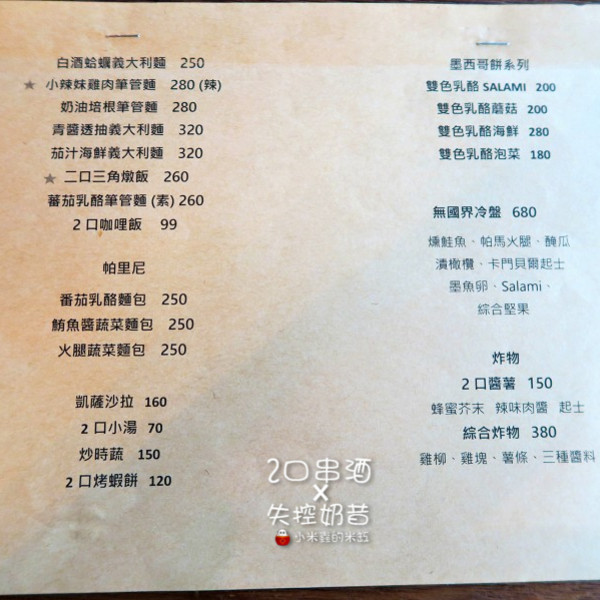 白酒蛤蠣義大利麵 250
★ 小辣妹雞肉筆管麵 280 (辣)
奶油培根筆管麵 280
青醬透抽義大利麵 320
茄汁海鮮義大利麵 320
★ 二口三角燉飯 260
蕃茄乳酪筆管麵 (素) 260
2 口咖哩飯 99
帕里尼
番茄乳酪麵包 250
鮪魚醬蔬菜麵包 250
火腿蔬菜麵包 250
凱薩沙拉 160
2 口小湯 70
炒時蔬 150
2 口烤蝦餅 120
墨西哥餅系列
雙色乳酪 SALAMI 200
雙色乳酪蘑菇 200
雙色乳酪海鮮 280
雙色乳酪泡菜 180
無國界冷盤 680
燻鮭魚、帕馬火腿、醃瓜
漬橄欖、卡門貝爾起士
墨魚卵、Salami、
綜合堅果
炸物
2 口醬薯 150
蜂蜜芥末 辣味肉醬 起士
綜合炸物 380
雞柳、雞塊、薯條、三種醬料
2口串酒
x
失控奶昔